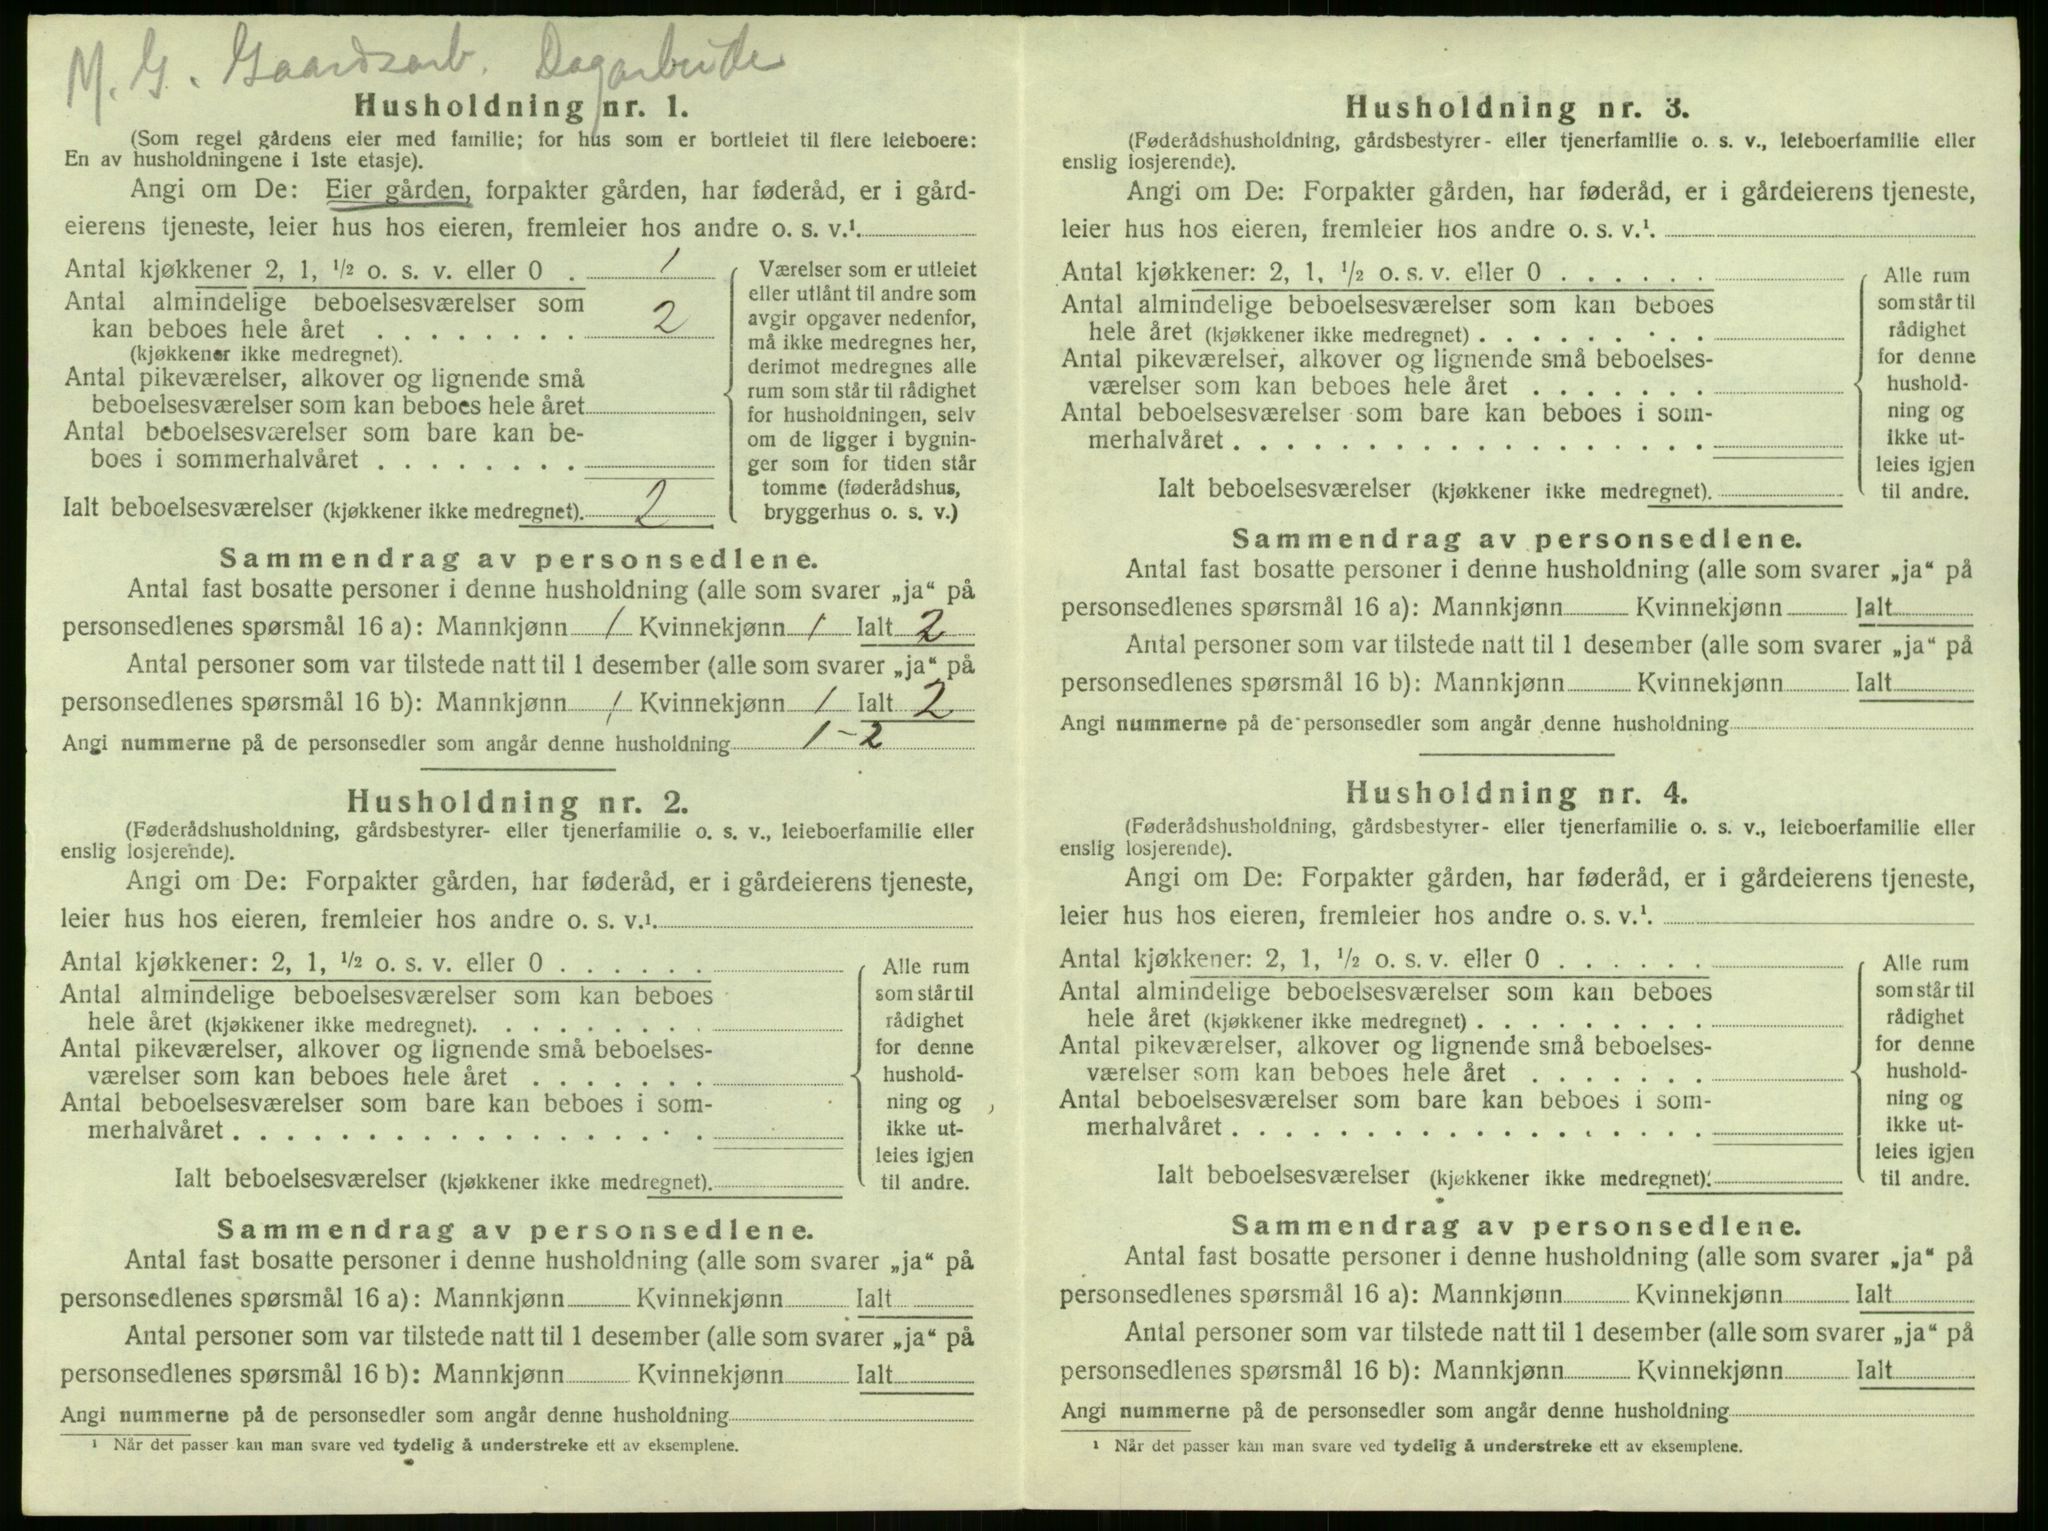 M. G. Gaardsarb. Dagarbeide
Husholdning nr. 1.
(Som regel gårdens eier med familie; for hus som er bortleiet til flere leieboere:
En av husholdningene i 1ste etasje).
Angi om De: Eier gården, forpakter gården, har føderåd, er i gård-
eierens tjeneste, leier hus hos eieren, fremleier hos andre o. s. v.¹
Antal kjøkkener 2, 1, ½ o. s. v. eller 0 . 1
Antal almindelige beboelsesværelser som
kan beboes hele året . . . . . . . 2
(kjøkkener ikke medregnet).
Antal pikeværelser, alkover og lignende små
beboelsesværelser som kan beboes hele året
Antal beboelsesværelser som bare kan be-
boes i sommerhalvåret . . . . . . . .
Ialt beboelsesværelser (kjøkkener ikke medregnet). 2
Værelser som er utleiet
eller utlånt til andre som
avgir opgaver nedenfor,
må ikke medregnes her,
derimot medregnes alle
rum som står til rådighet
for husholdningen, selv
om de ligger i bygnin-
ger som for tiden står
tomme (føderådshus,
bryggerhus o. s. v.)
Sammendrag av personsedlene.
Antal fast bosatte personer i denne husholdning (alle som svarer „ja“ på
personsedlenes spørsmål 16 a): Mannkjønn 1 Kvinnekjønn 1 Ialt 2
Antal personer som var tilstede natt til 1 desember (alle som svarer „ja“ på
personsedlenes spørsmål 16 b): Mannkjønn 1 Kvinnekjønn 1 Ialt 2
Angi nummerne på de personsedler som angår denne husholdning 1-2
Husholdning nr. 2.
(Føderådshusholdning, gårdsbestyrer- eller tjenerfamilie o. s. v., leieboerfamilie eller
enslig losjerende).
Angi om De: Forpakter gården, har føderåd, er i gårdeierens tjeneste,
leier hus hos eieren, fremleier hos andre o. s. v.¹
Antal kjøkkener: 2, 1, ½ o. s. v. eller 0 . . . . . .
Antal almindelige beboelsesværelser som kan beboes
hele året (kjøkkener ikke medregnet). . . . . . . . .
Antal pikeværelser, alkover og lignende små beboelses-
værelser som kan beboes hele året . . . . . . .
Antal beboelsesværelser som bare kan beboes i som-
merhalvåret . . . . . . . . . . . . . . . . . .
Ialt beboelsesværelser (kjøkkener ikke medregnet).
Alle rum
som står til
rådighet
for denne
hushold-
ning og
ikke ut-
leies igjen
til andre.
Sammendrag av personsedlene.
Antal fast bosatte personer i denne husholdning (alle som svarer „ja“ på
personsedlenes spørsmål 16 a): Mannkjønn Kvinnekjønn Ialt
Antal personer som var tilstede natt til 1 desember (alle som svarer „ja“ på
personsedlenes spørsmål 16 b): Mannkjønn Kvinnekjønn Ialt
Angi nummerne på de personsedler som angår denne husholdning
¹ Når det passer kan man svare ved tydelig å understreke ett av eksemplene.
Husholdning nr. 3.
(Føderådshusholdning, gårdsbestyrer- eller tjenerfamilie o. s. v., leieboerfamilie eller
enslig losjerende).
Angi om De: Forpakter gården, har føderåd, er i gårdeierens tjeneste,
leier hus hos eieren, fremleier hos andre o. s. v.¹.
Antal kjøkkener: 2, 1, ½ o. s. v. eller 0 . . . . . .
Antal almindelige beboelsesværelser som kan beboes
hele året (kjøkkener ikke medregnet) . . . . . . . . .
Antal pikeværelser, alkover og lignende små beboelses-
værelser som kan beboes hele året . . . . . . .
Antal beboelsesværelser som bare kan beboes i som-
merhalvåret . . . . . . . . . . . . . . . . . .
Ialt beboelsesværelser (kjøkkener ikke medregnet).
Alle rum
som står til
rådighet
for denne
hushold-
ning og
ikke ut-
leies igjen
til andre.
Sammendrag av personsedlene.
Antal fast bosatte personer i denne husholdning (alle som svarer „ja“ på
personsedlenes spørsmål 16 a): Mannkjønn Kvinnekjønn Ialt
Antal personer som var tilstede natt til 1 desember (alle som svarer „ja“ på
personsedlenes spørsmål 16 b): Mannkjønn Kvinnekjønn Ialt
Angi nummerne på de personsedler som angår denne husholdning
Husholdning nr. 4.
(Føderådshusholdning, gårdsbestyrer- eller tjenerfamilie o. s. v., leieboerfamilie eller
enslig losjerende).
Angi om De: Forpakter gården, har føderåd, er i gårdeierens tjeneste,
leier hus hos eieren, fremleier hos andre o. s. v.¹.
Antal kjøkkener: 2, 1, ½ o. s. v. eller 0 . . . . . .
Antal almindelige beboelsesværelser som kan beboes
hele året (kjøkkener ikke medregnet) . . . . . . . . .
Antal pikeværelser, alkover og lignende små beboelses-
værelser som kan beboes hele året . . . . . . .
Antal beboelsesværelser som bare kan beboes i som-
merhalvåret . . . . . . . . . . . . . . . . . .
Ialt beboelsesværelser (kjøkkener ikke medregnet).
Alle rum
som står til
rådighet
for denne
hushold-
ning og
ikke ut-
leies igjen
til andre.
Sammendrag av personsedlene.
Antal fast bosatte personer i denne husholdning (alle som svarer „ja“ på
personsedlenes spørsmål 16 a): Mannkjønn Kvinnekjønn Ialt
Antal personer som var tilstede natt til 1 desember (alle som svarer „ja“ på
personsedlenes spørsmål 16 b): Mannkjønn Kvinnekjønn Ialt
Angi nummerne på de personsedler som angår denne husholdning
¹ Når det passer kan man svare ved tydelig å understreke ett av eksemplene.